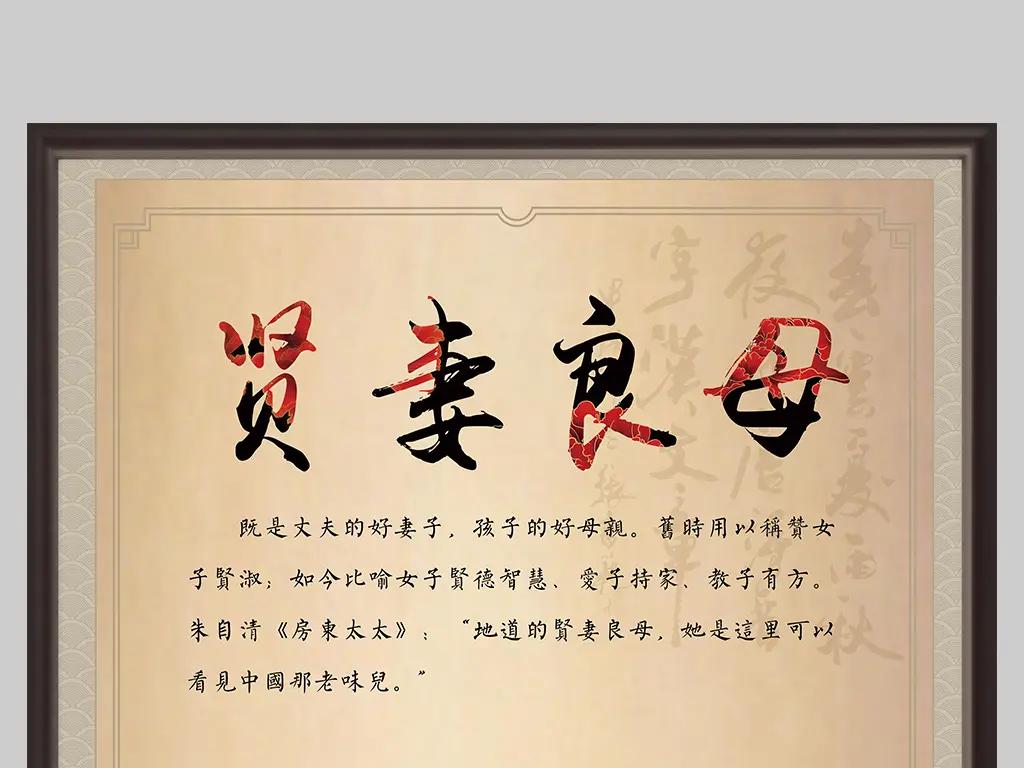 贤妻良母
既是丈夫的好妻子，孩子的好母親。舊時用以稱贊女
子賢淑；如今比喻女子賢德智慧、愛子持家、教子有方。
朱自清《房東太太》：“地道的賢妻良母，她是這里可以
看見中國那老味兒。”